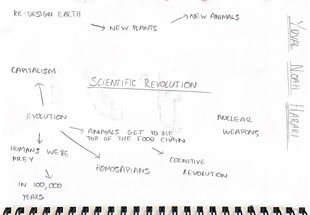 RE-DESIGN EARTH
NEW PLANTS
NEW ANIMALS
YUVAL NOAH HARARI
CAPITALISM
SCIENTIFIC REVOLUTION
EVOLUTION
ANIMALS GET TO BE
TOP OF THE FOOD CHAIN
NUCLEAR
WEAPONS
HUMANS WERE
PREY
HOMOSAPIANS
COGNITIVE
REVOLUTION
IN 100,000
YEARS